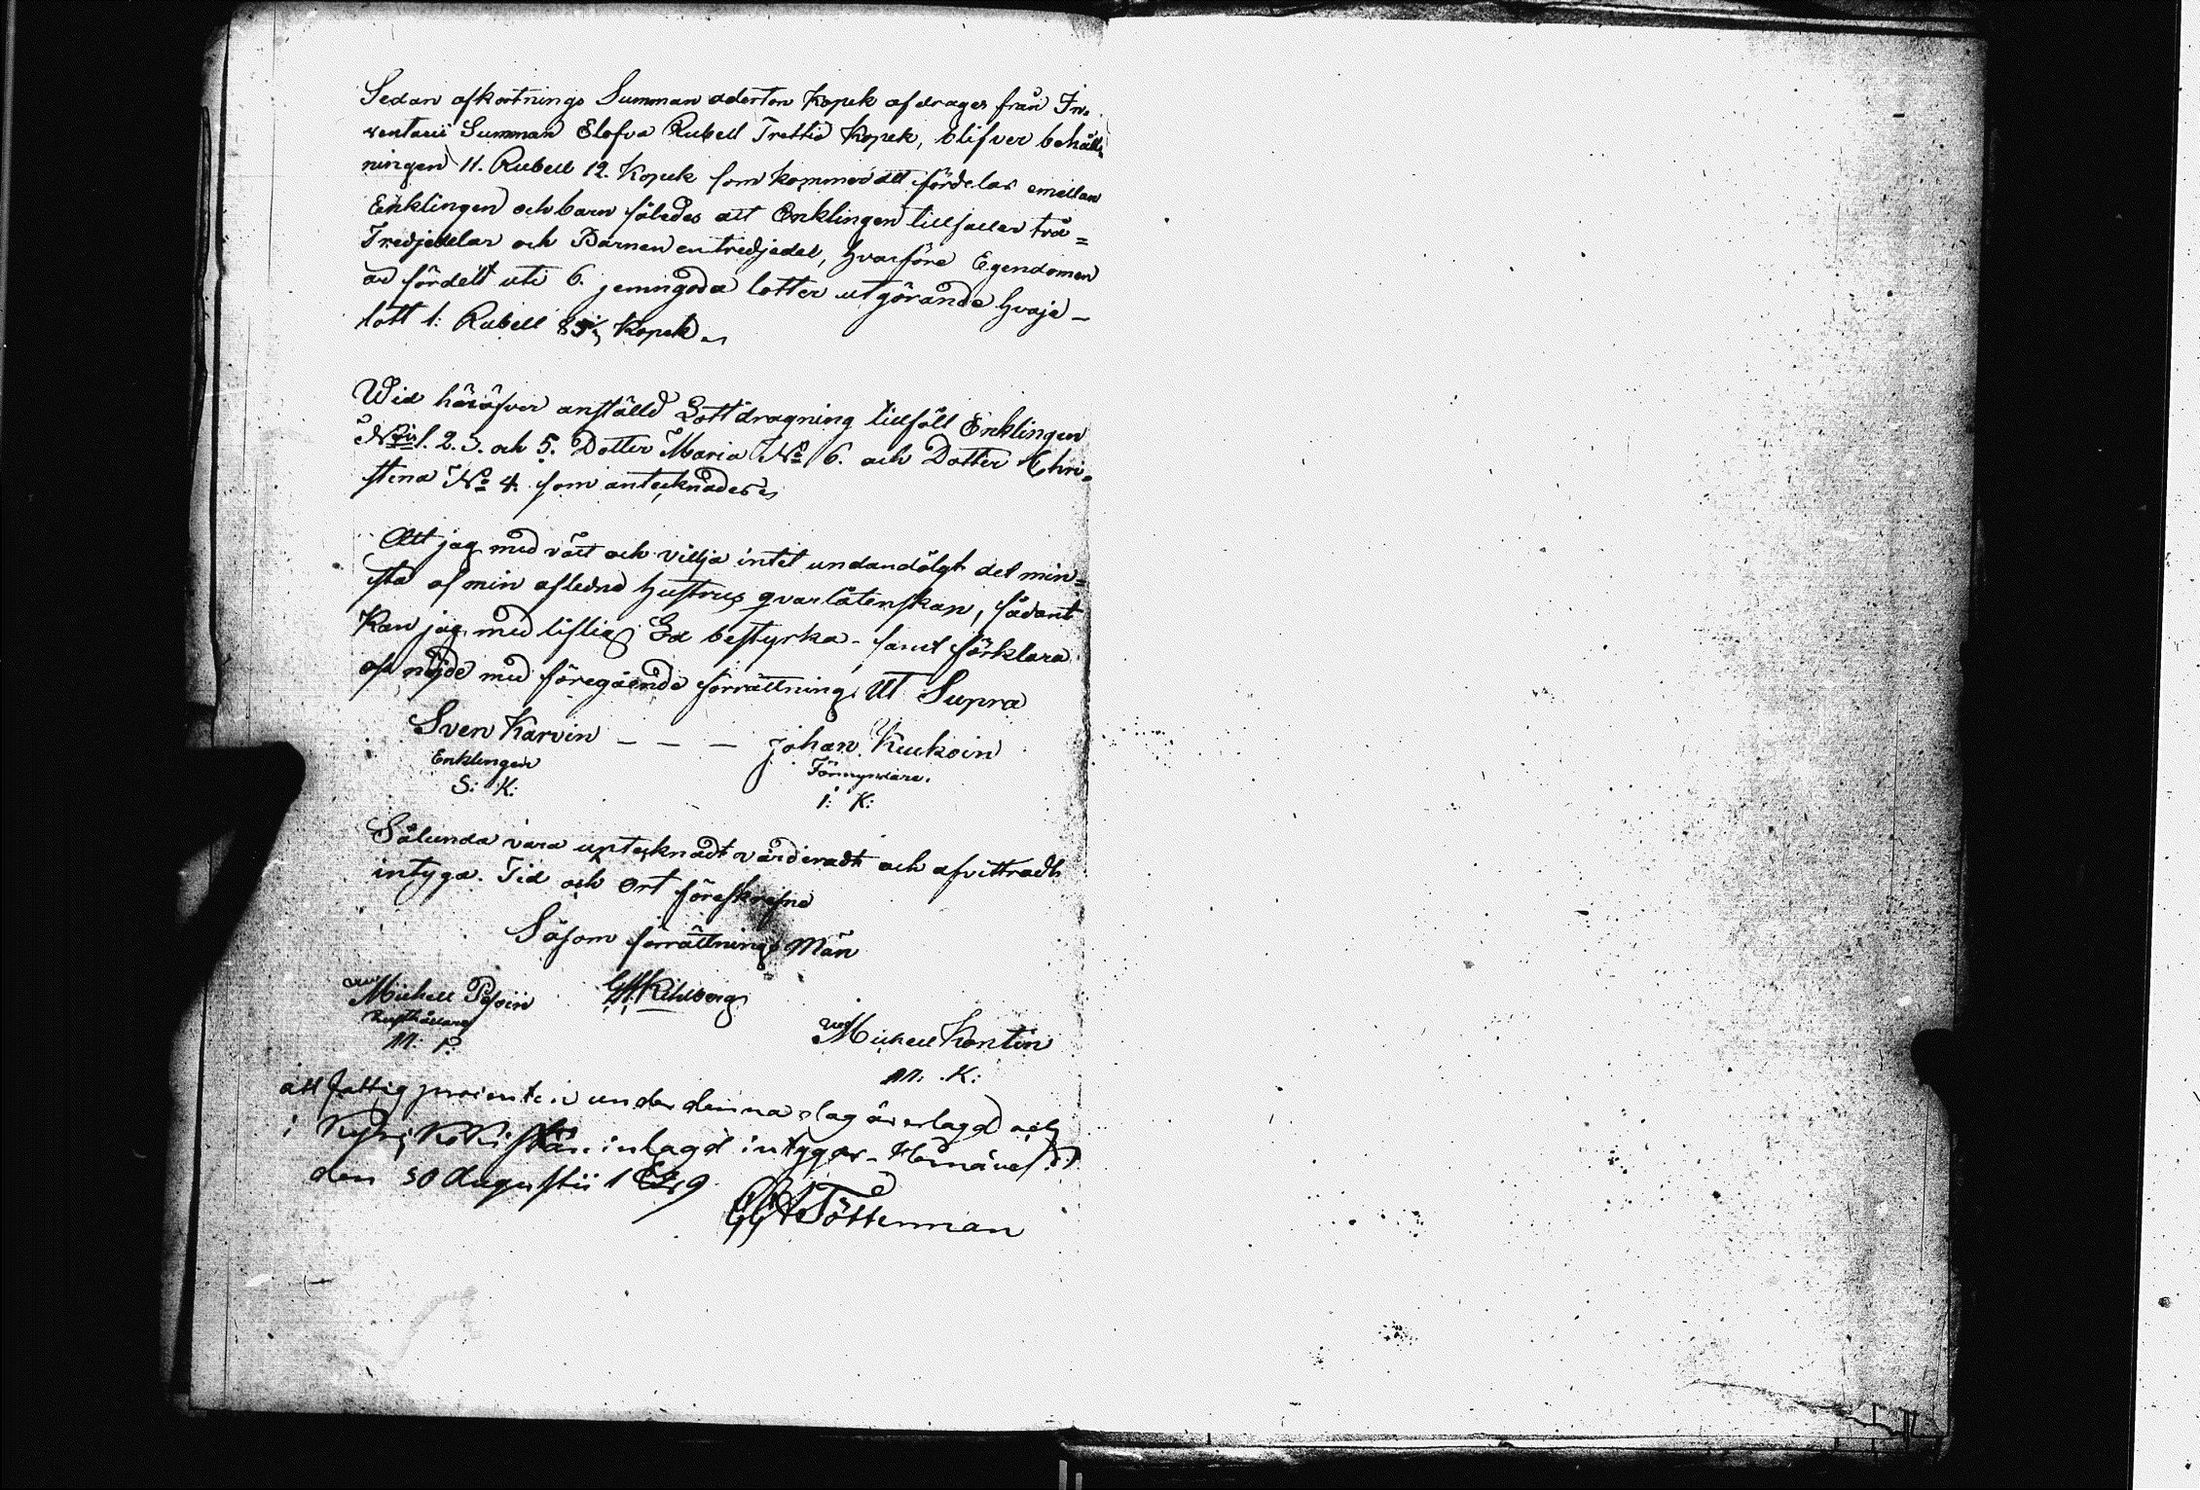 Sedan afkortnings Summan aderton Kopek afdrages från In-
ventarii Summan Elofva Rubell Trettio Kopek, blifver behåll-
ningen 11. Rubell 12. Kopek som kommer att fördelas emellan
Enklingen och barn således att Enklingen tillfaller två=
Tredjedelar och Barnen en tredjedel, hvarföre Egendomen
är fördelt uti 6. jemngoda lotter utgörande hvaje-
lott 1: Rubell 85⅓ Kopek.
Wid häröfver anställd Lottdragning tillföll Enklingen
N:ris 1. 2. 3. och 5. Dotter Maria N:o 6. och Dotter Chri-
stina N:o 4. som antecknades
Att jag med vett och villja intet undandölgt det min=
sta af min aflidne hustrus qvarlåtenskap, sådant
Kan jag med liflig Ed bestyrka - samt förklara
oss nöjde med föregående förrättning, Ut Supra
Sven Karvin - - - Johan Kuukoin
Enklingen Förmyndare.
S: K: I: K:
Sålunda vara uptecknadt värderadt och afvittradt
intyga. Tid och Ort föreskrefne
Såsom förrättnings Män
Michell Pösöin G. Kihlberg
Rusthållare
M: P:
Michell Kontin
M: K:
att fattig procenten under denna dag är erlagd och
i Kyrko Kistan inlagd intygar
den 30 Augustii 1849
Tötterman